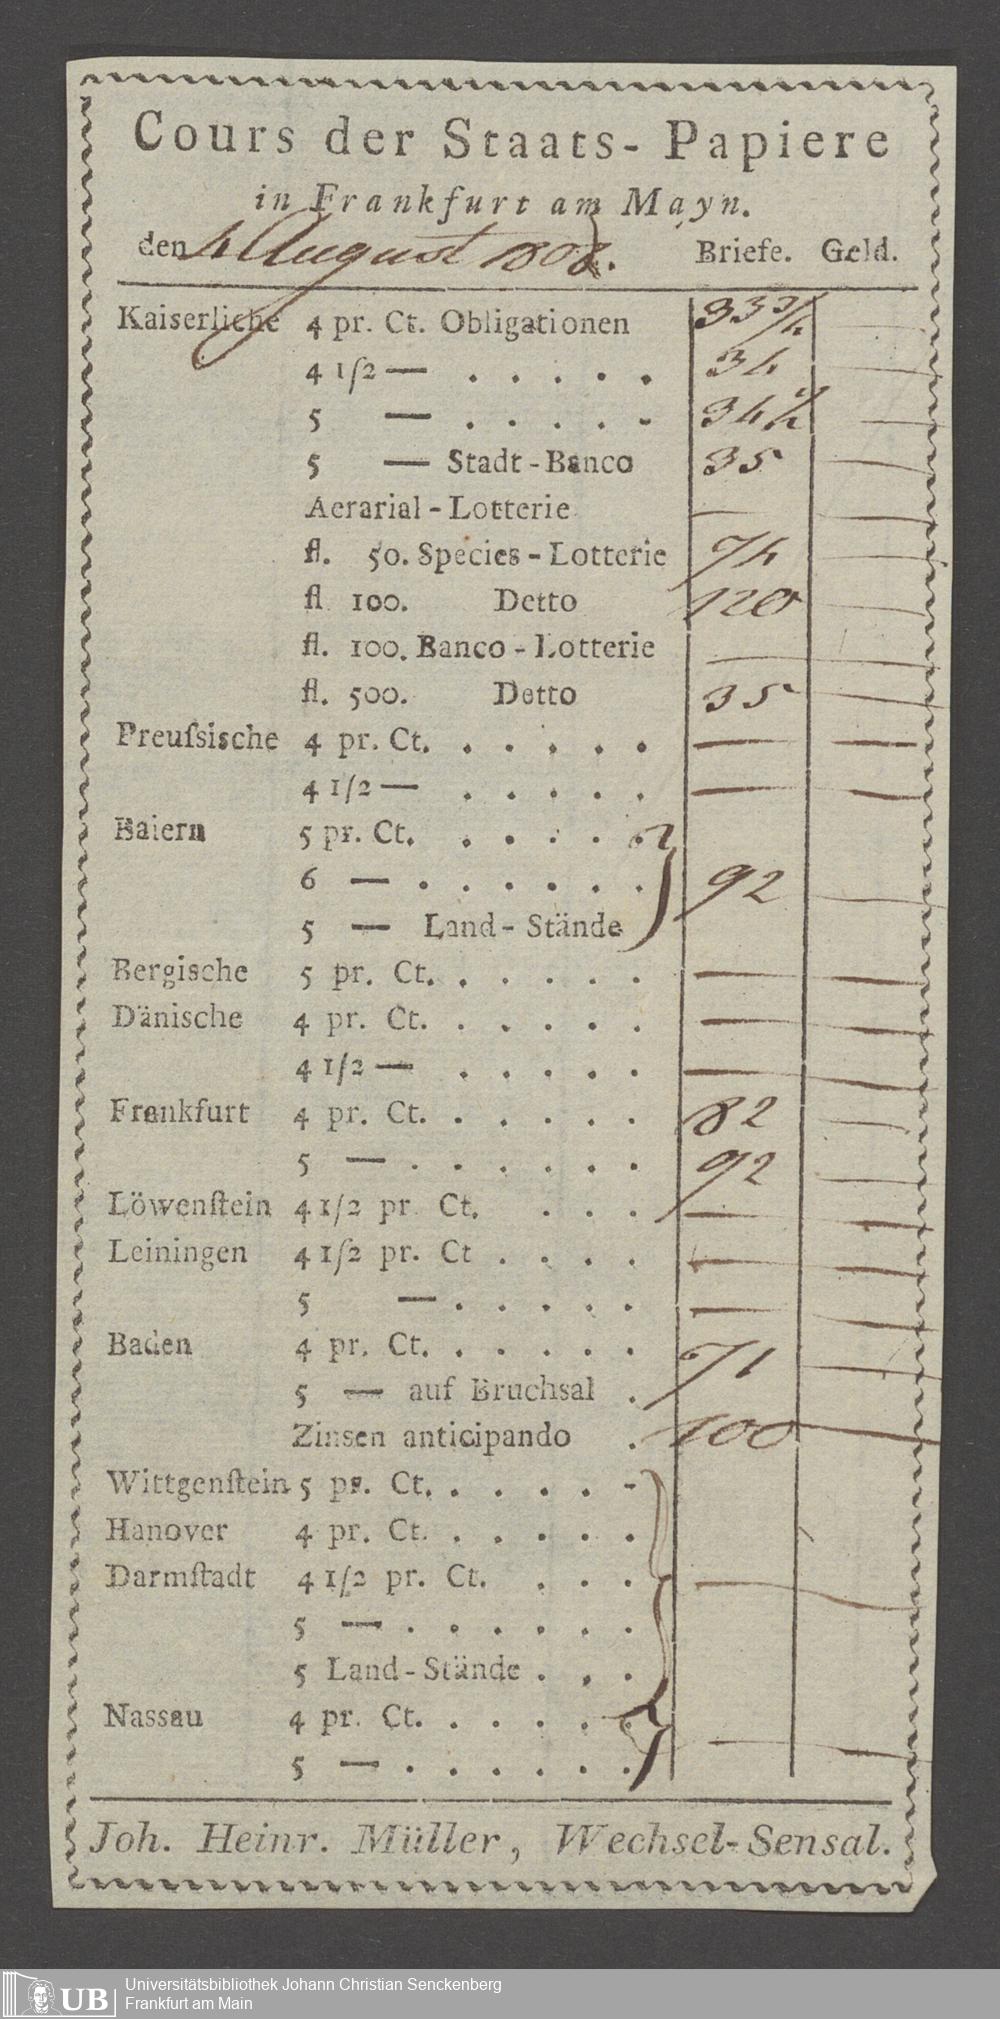 Cours der Staats-Papiere
in Frankfurt am Mayn.
den 4 August 1808. Briefe. Geld.
Kaiserliche 4 pr. Ct. Obligationen 33 3/4 —
4 1/2 — . . . . . 34 —
5 — . . . . . 34 1/2 —
5 — Stadt-Banco 35 —
Aerarial-Lotterie — —
fl. 50. Species-Lotterie 74 —
fl 100. Detto 120 —
fl. 100. Banco-Lotterie — —
fl. 500. Detto 35 —
Preuſsische 4 pr. Ct. . . . . . — —
4 1/2 — . . . . . — —
Baiern 5 pr. Ct. . . . . .
6 — . . . . . . 92 —
5 — Land-Stände
Bergische 5 pr. Ct. . . . . . — —
Dänische 4 pr. Ct. . . . . . — —
4 1/2 — . . . . . — —
Frankfurt 4 pr. Ct. . . . . . 82 —
5 — . . . . . . 92 —
Löwenſtein 4 1/2 pr Ct. . . . — —
Leiningen 4 1/2 pr. Ct . . . . — —
5 — . . . . . — —
Baden 4 pr. Ct. . . . . . 71 —
5 — auf Bruchsal .
Zinsen anticipando . 100 —
Wittgenſtein 5 pr. Ct. . . . . -
Hanover 4 pr. Ct. . . . . .
Darmſtadt 4 1/2 pr. Ct. . . . — —
5 — . . . . . .
5 Land-Stände . . .
Nassau 4 pr. Ct. . . . . .
5 — . . . . . . — —
Joh. Heinr. Müller, Wechsel-Sensal.
UB Universitätsbibliothek Johann Christian Senckenberg
Frankfurt am Main